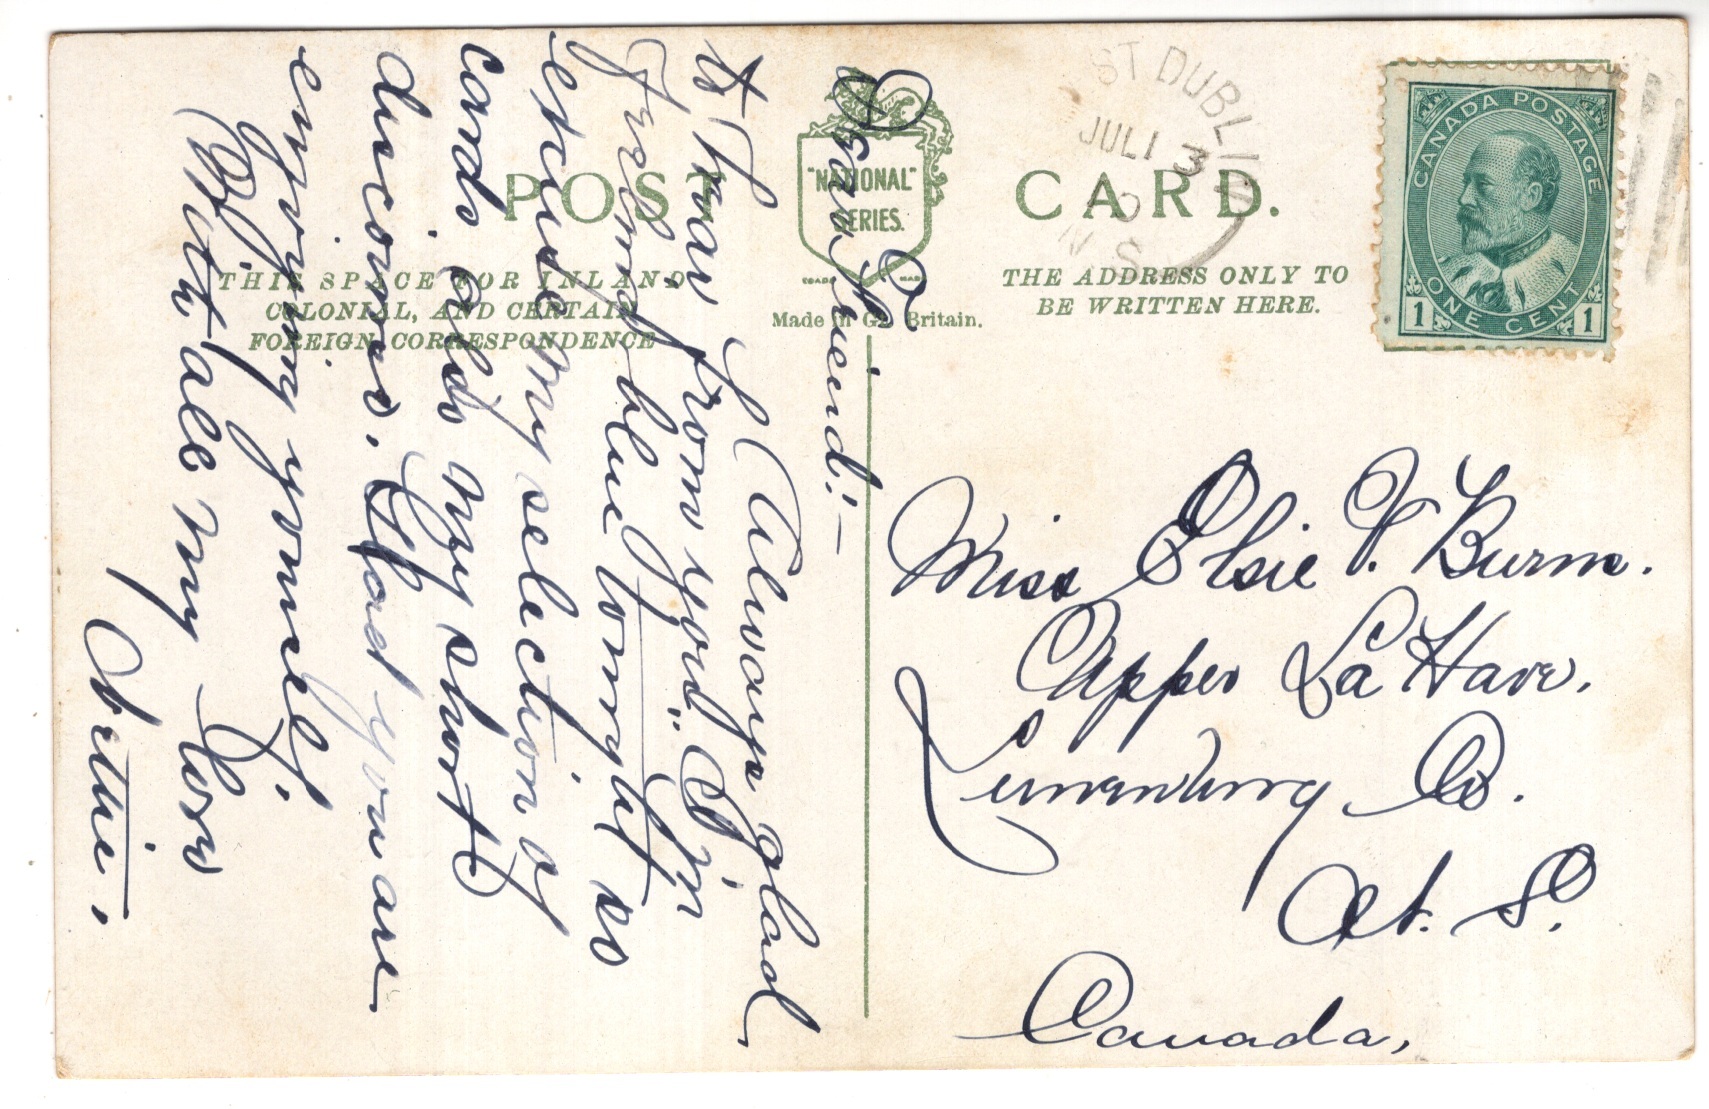 POST CARD.
"NATIONAL"
SERIES.
Made in Gt. Britain.
THIS SPACE FOR INLAND
COLONIAL, AND CERTAIN
FOREIGN CORRESPONDENCE
THE ADDRESS ONLY TO
BE WRITTEN HERE.
ST DUBLIN
JUL 13
10
N.S.
CANADA POSTAGE
ONE CENT
1 1
Dear Friend:-
Always glad
to hear from you. I'm
feeling blue tonight so
excuse my selection of
cards also my short
discours. Glad you are
enjoying yourself.
With all my love
Nettie.
Miss Elsie V. Burns.
Upper La Have,
Lunenburg Co.
N. S.
Canada,